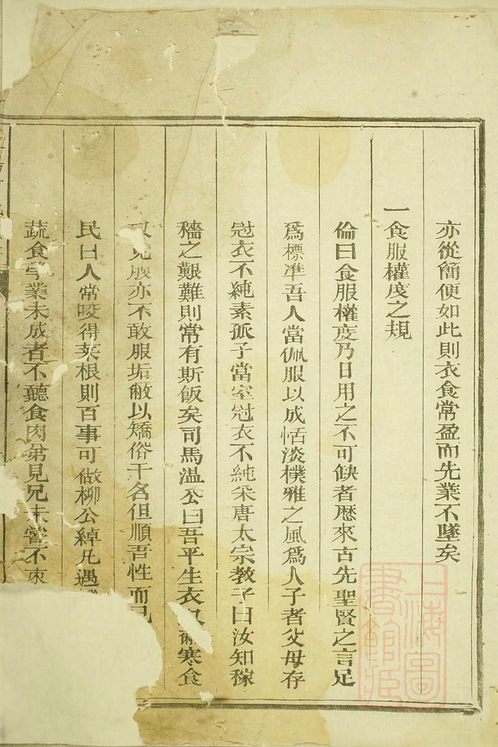 亦從簡便如此則衣食常盈而先業不墜矣
一食服權度之規
倫曰食服權度乃日用之不可缺者歷來古先聖賢之言足
爲標準吾人當佩服以成恬淡樸雅之風爲人子者父母存
冠衣不純素孤子當室冠衣不純采唐太宗教子曰汝知稼
穡之艱難則常有斯飯矣司馬温公曰吾平生衣取蔽寒食
取充腹亦不敢服垢敝以矯俗干名但順吾性而已
民曰人常咬得菜根則百事可做柳公綽凡遇
蔬食學業未成者不聽食肉弟見兄未嘗不束
上海圖書館藏